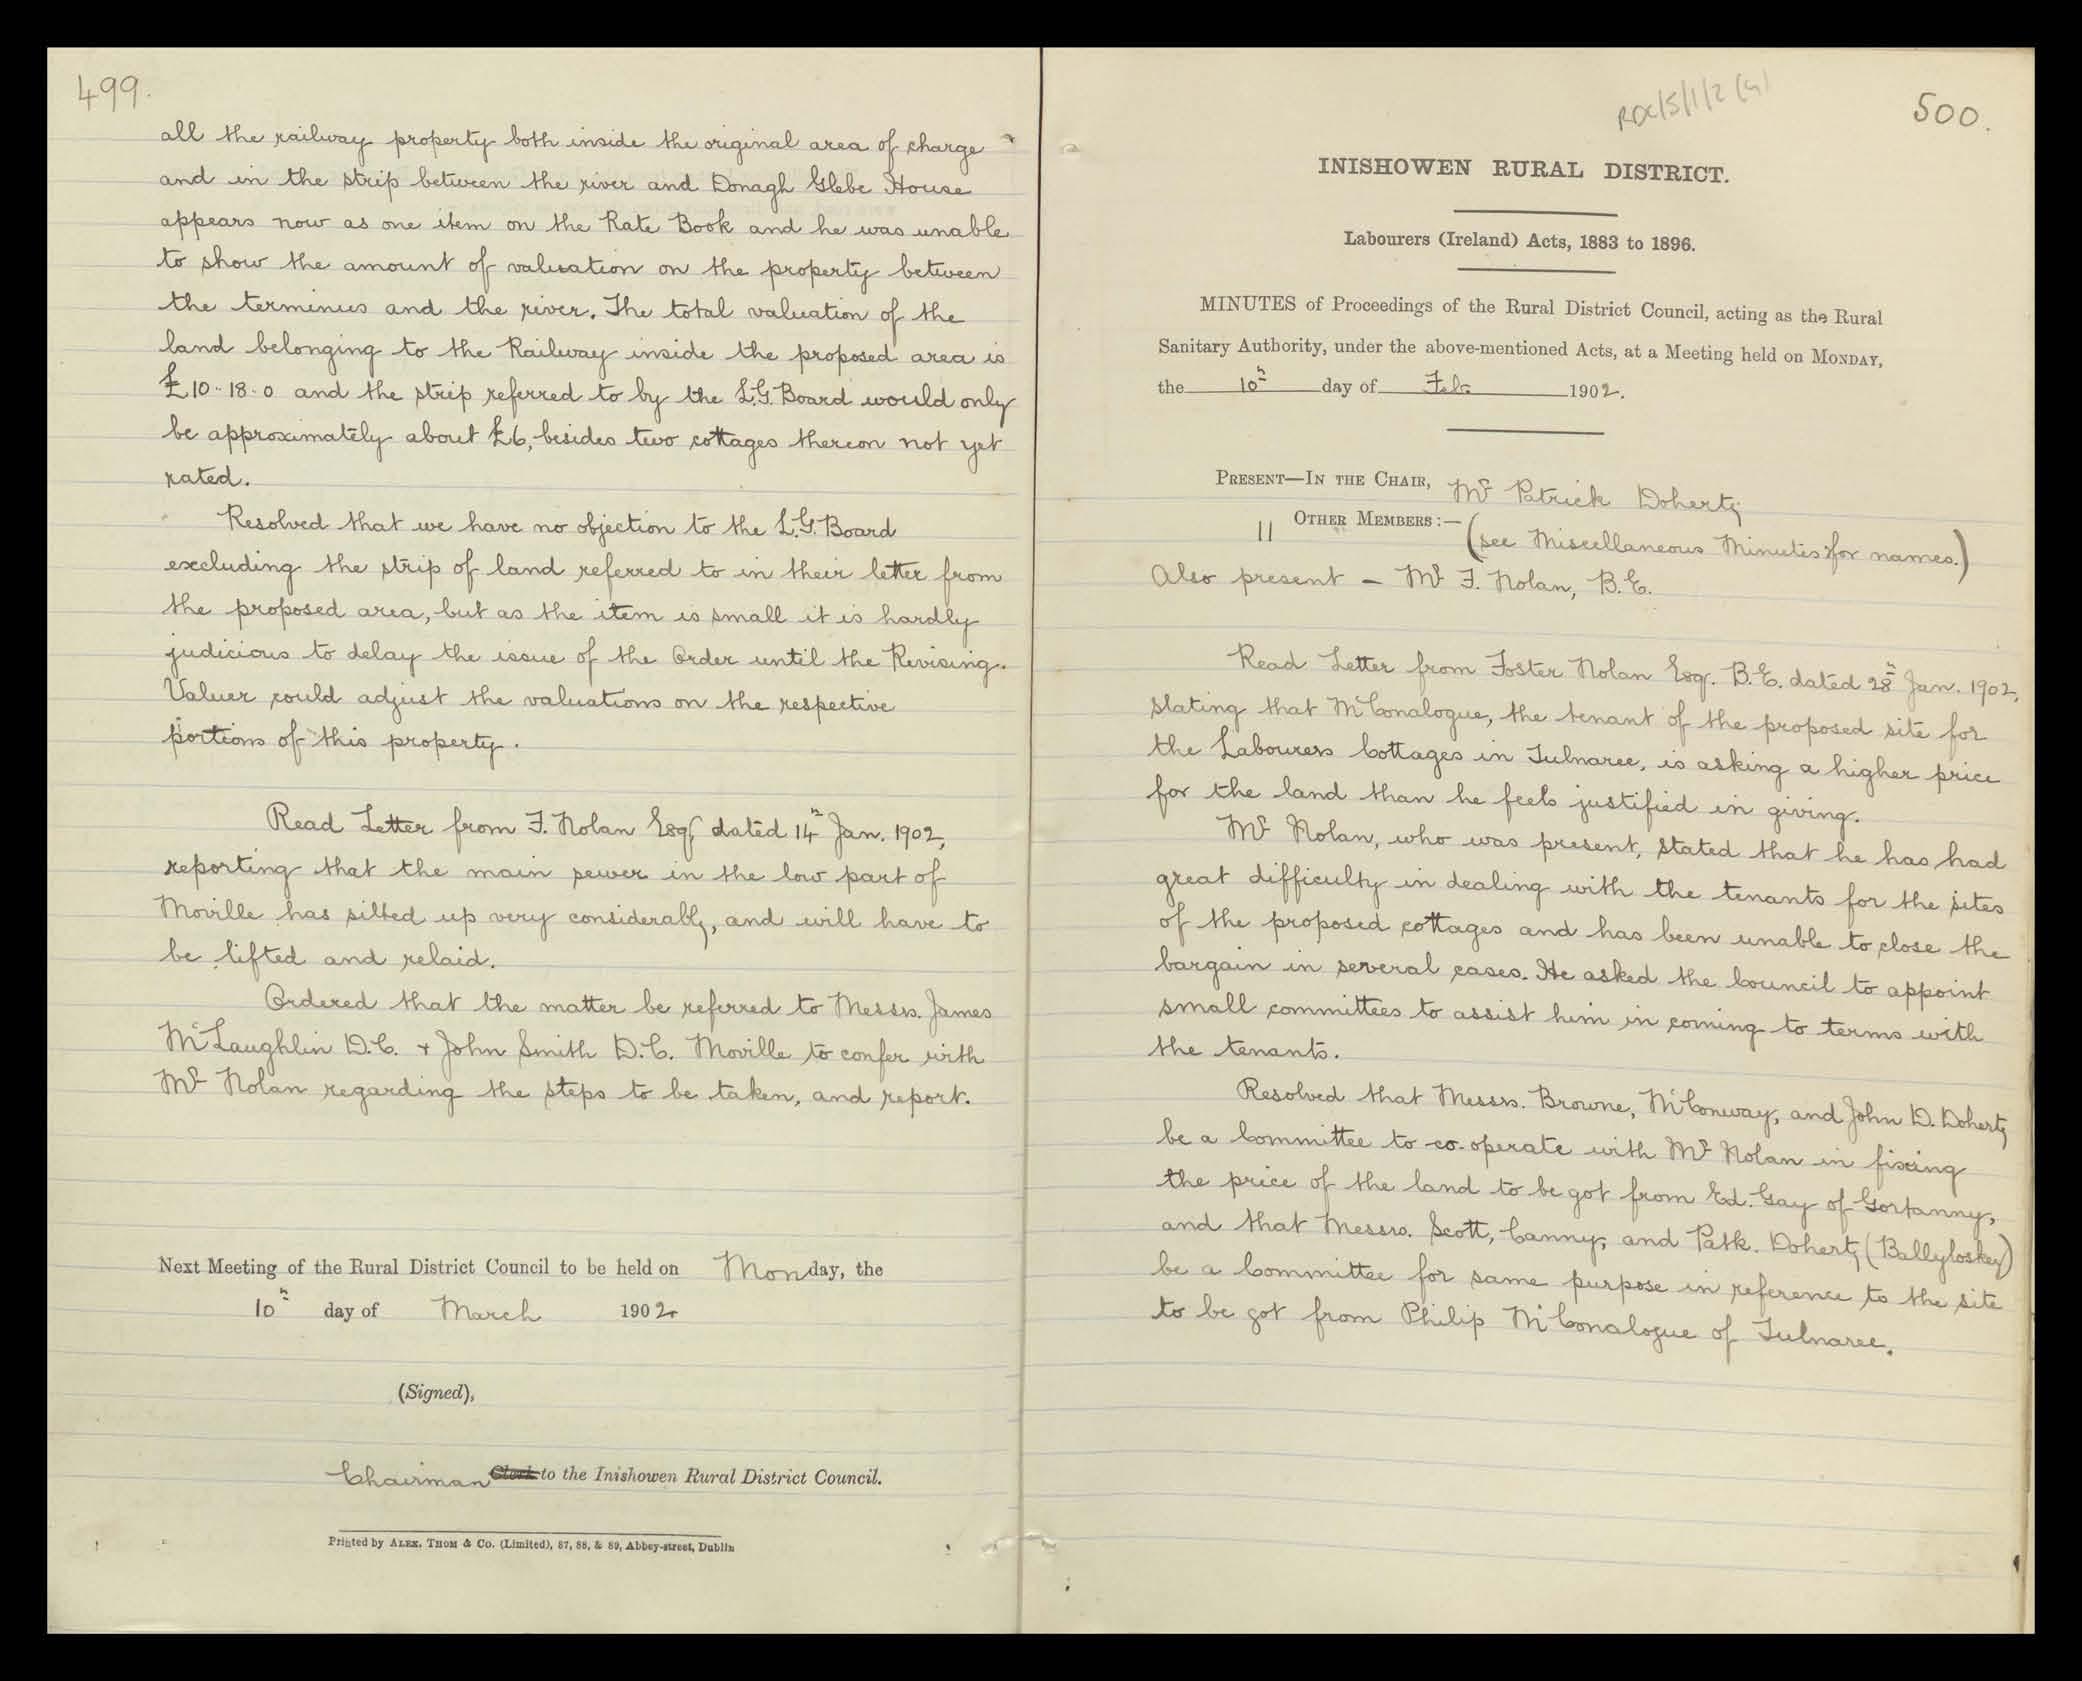 499.
all the railway property both inside the original area of charge
and in the strip between the river and Donagh Glebe House
appears now as one item on the Rate Book and he was unable
to show the amount of valuation on the property between
the terminus and the river. The total valuation of the
land belonging to the Railway inside the proposed area is
£10-18-0 and the strip referred to by the L.G. Board would only
be approximately about £6, besides two cottages thereon not yet
rated.
Resolved that we have no objection to the L.G. Board
excluding the strip of land referred to in their letter from
the proposed area, but as the item is small it is hardly
judicious to delay the issue of the Order until the Revising
Valuer could adjust the valuations on the respective
portions of this property.
Read Letter from F. Nolan Esq, dated 14th Jan. 1902,
reporting that the main sewer in the low part of
Moville has silted up very considerably, and will have to
be lifted and relaid.
Ordered that the matter be referred to Messrs. James
McLaughlin D.C. & John Smith D.C. Moville to confer with
Mr Nolan regarding the steps to be taken, and report.
Next Meeting of the Rural District Council to be held on Monday, the
10th day of March 1902
(Signed),
Chairman Clerk to the Inishowen Rural District Council.
Printed by ALEX. THOM & Co. (Limited), 87, 88, & 89, Abbey-street, Dublin
RDC/5/1/2 (4)
500.
INISHOWEN RURAL DISTRICT.
Labourers (Ireland) Acts, 1883 to 1896.
MINUTES of Proceedings of the Rural District Council, acting as the Rural
Sanitary Authority, under the above-mentioned Acts, at a Meeting held on MONDAY,
the 10th day of Feb. 1902.
PRESENT—IN THE CHAIR, Mr Patrick Doherty
11 OTHER MEMBERS:— (see Miscellaneous Minutes for names.)
Also present - Mr F. Nolan, B.E.
Read Letter from Foster Nolan Esq. B.E. dated 28th Jan. 1902,
stating that McConalogue, the tenant of the proposed site for
the Labourers Cottages in Tulnaree, is asking a higher price
for the land than he feels justified in giving.
Mr Nolan, who was present, stated that he has had
great difficulty in dealing with the tenants for the sites
of the proposed cottages and has been unable to close the
bargain in several cases. He asked the Council to appoint
small committees to assist him in coming to terms with
the tenants.
Resolved that Messrs. Browne, McConway, and John D. Doherty
be a Committee to co-operate with Mr Nolan in fixing
the price of the land to be got from Ed. Gay of Gortanny,
and that Messrs. Scott, Canny, and Patk. Doherty (Ballyloskey)
be a Committee for same purpose in reference to the site
to be got from Philip McConalogue of Tulnaree.